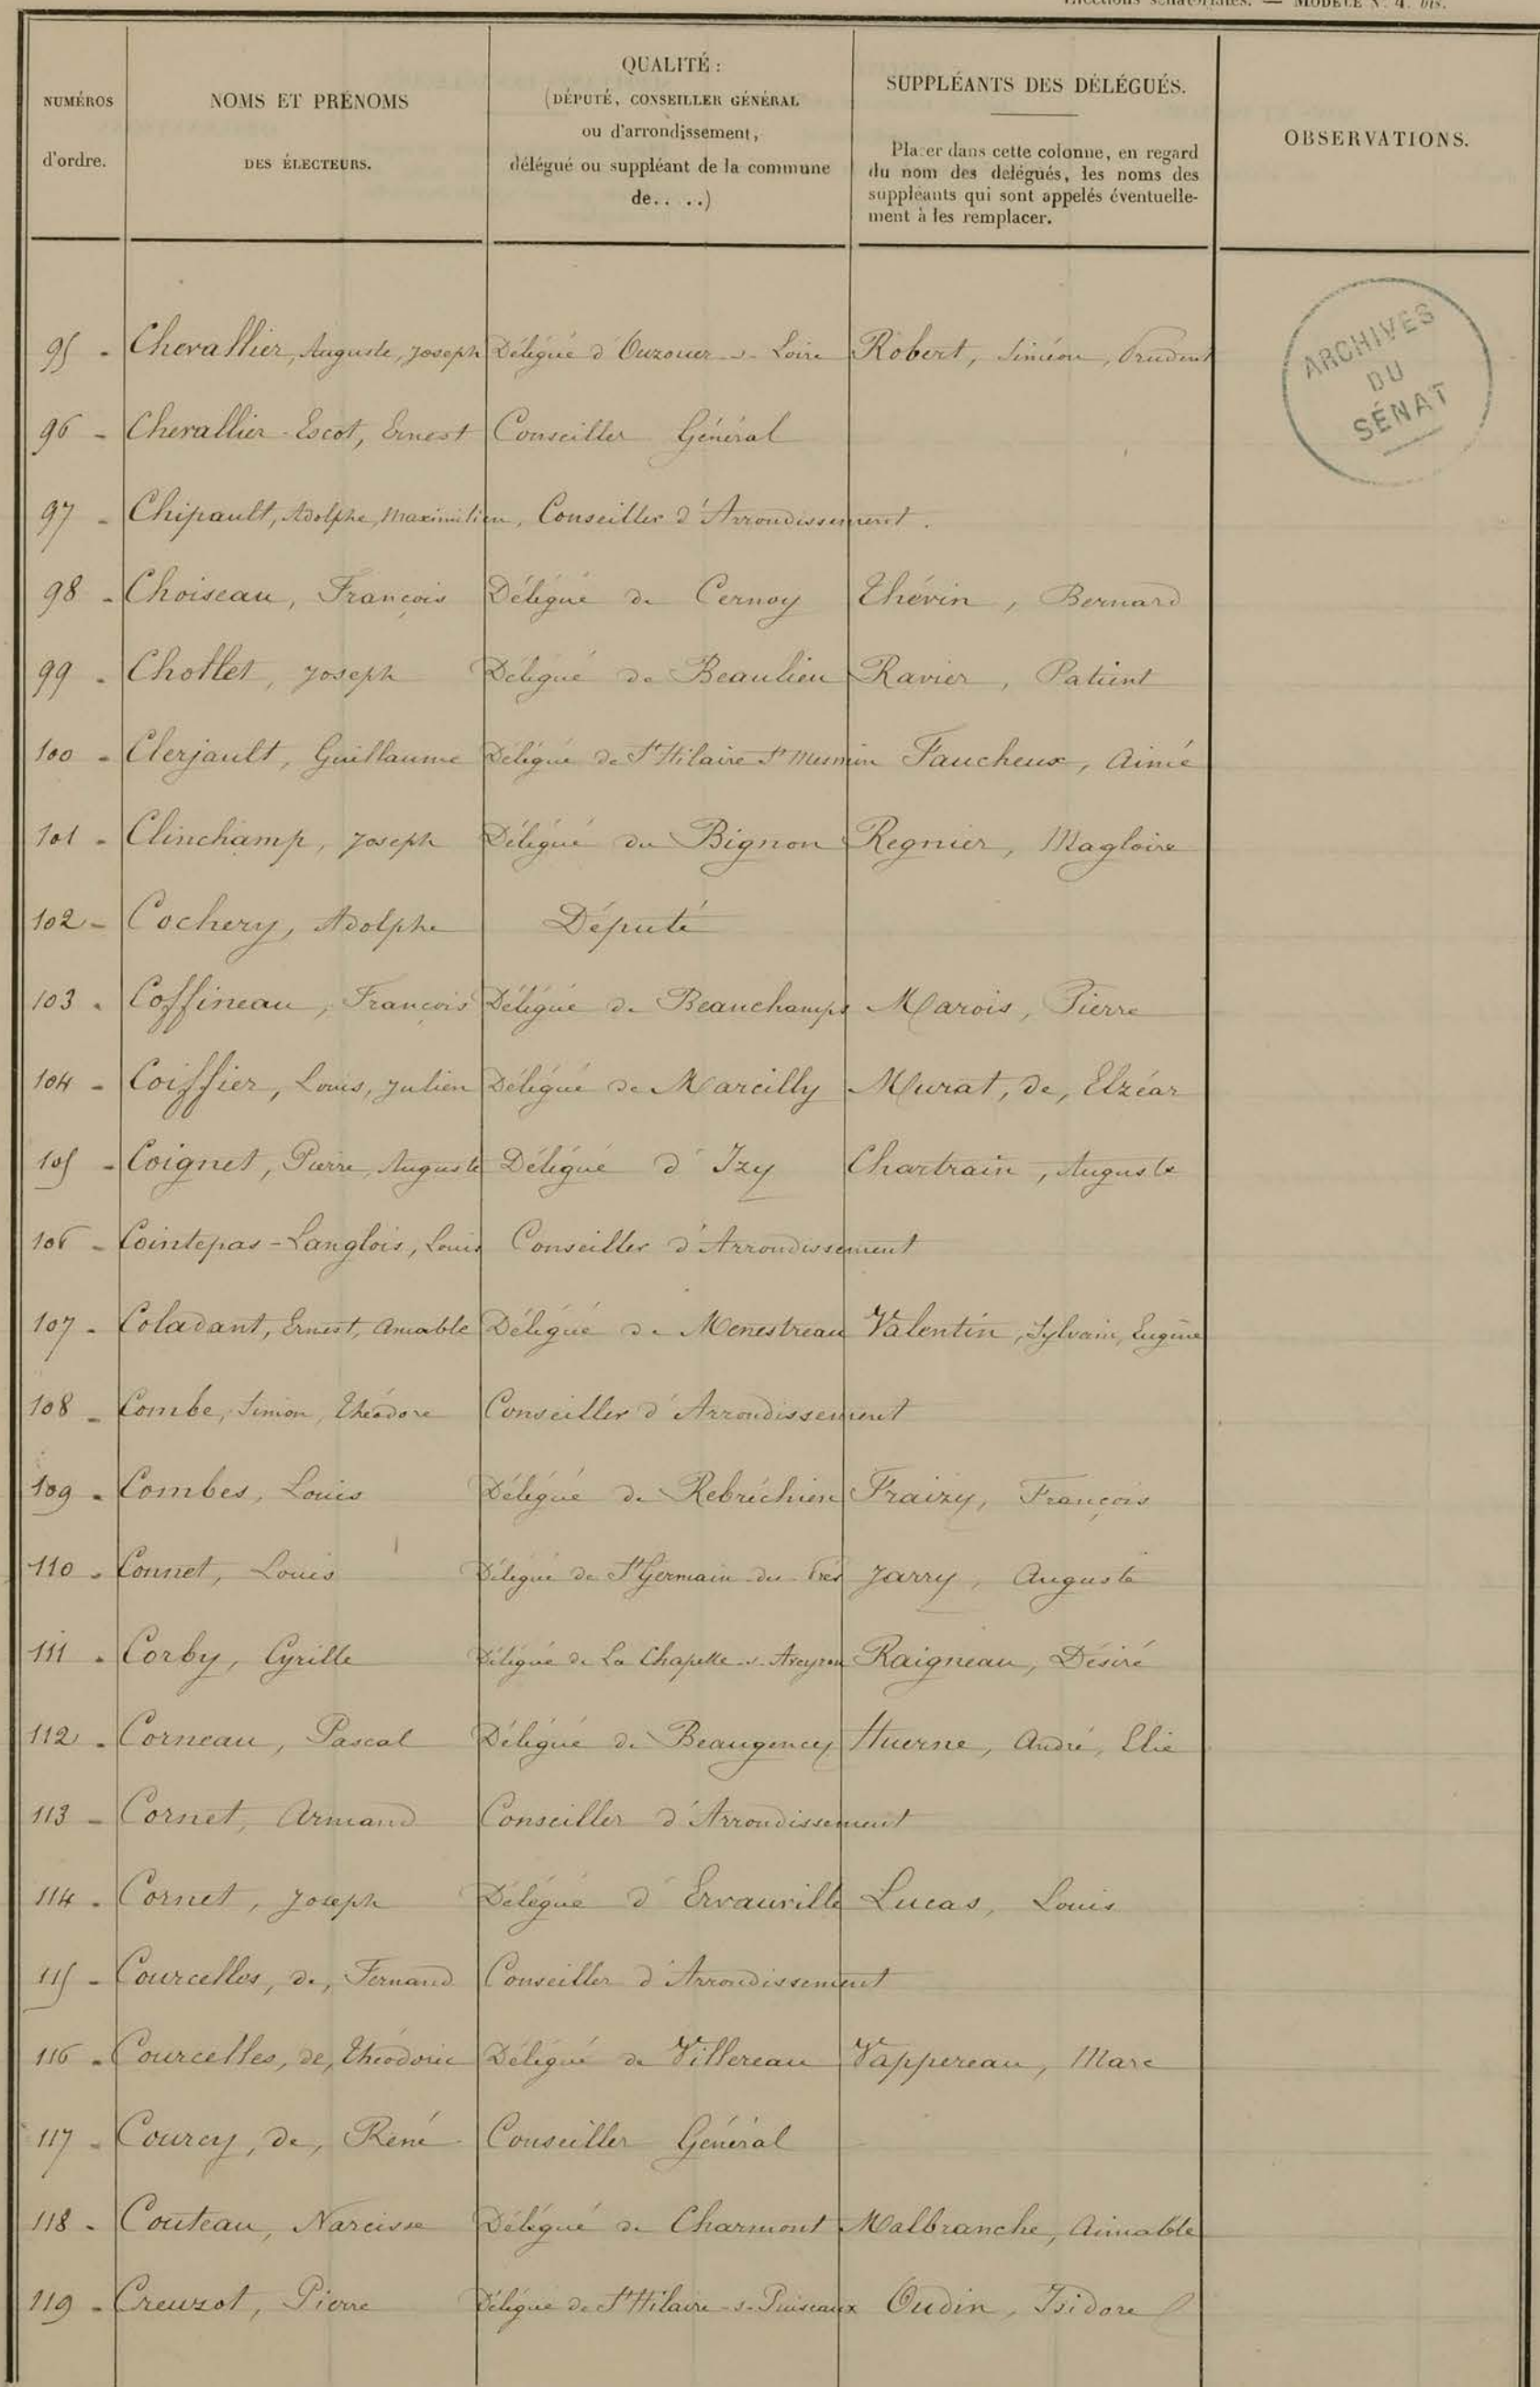 Elections sénatoriales. — MODÈLE N° 4 bis.
NUMÉROS
d'ordre.
NOMS ET PRÉNOMS
DES ÉLECTEURS.
QUALITÉ :
(DÉPUTÉ, CONSEILLER GÉNÉRAL
ou d'arrondissement,
délégué ou suppléant de la commune
de.. ..)
SUPPLÉANTS DES DÉLÉGUÉS.
Placer dans cette colonne, en regard
du nom des délégués, les noms des
suppléants qui sont appelés éventuelle-
ment à les remplacer.
OBSERVATIONS.
ARCHIVES
DU
SÉNAT
95 - Chevallier, Auguste, Joseph Délégué d'Ouzouer-s-Loire Robert, Siméon, Prudent
96 - Chevallier-Escot, Ernest Conseiller Général
97 - Chipault, Adolphe, Maximilien, Conseiller d'Arrondissement.
98 - Choiseau, François Délégué de Cernoy Thévin, Bernard
99 - Chollet, Joseph Délégué de Beaulieu Ravier, Patient
100 - Clerjault, Guillaume Délégué de St Hilaire St Mesmin Faucheux, Aimé
101 - Clinchamp, Joseph Délégué du Bignon Regnier, Magloire
102 - Cochery, Adolphe Député
103 - Coffineau, François Délégué de Beauchamps Marois, Pierre
104 - Coiffier, Louis, Julien Délégué de Marcilly Murat, de, Elzéar
105 - Coignet, Pierre, Auguste Délégué d'Izy Chartrain, Auguste
106 - Cointepas-Langlois, Louis Conseiller d'Arrondissement
107 - Coladant, Ernest, Amable Délégué de Menestreau Valentin, Sylvain, Eugène
108 - Combe, Simon, Théodore Conseiller d'Arrondissement
109 - Combes, Louis Délégué de Rebréchien Fraizy, François
110 - Connet, Louis Délégué de St Germain-des-Prés Jarry, Auguste
111 - Corby, Cyrille Délégué de La Chapelle-s-Aveyron Raigneau, Désiré
112 - Corneau, Pascal Délégué de Beaugency Huerne, André, Elie
113 - Cornet, Armand Conseiller d'Arrondissement
114 - Cornet, Joseph Délégué d'Ervauville Lucas, Louis
115 - Courcelles, de, Fernand Conseiller d'Arrondissement
116 - Courcelles, de, Théodoric Délégué de Villereau Vappereau, Marc
117 - Courcy, de, René Conseiller Général
118 - Couteau, Narcisse Délégué de Charmont Malbranche, Aimable
119 - Creuzot, Pierre Délégué de St Hilaire-s-Puiseaux Oudin, Isidore